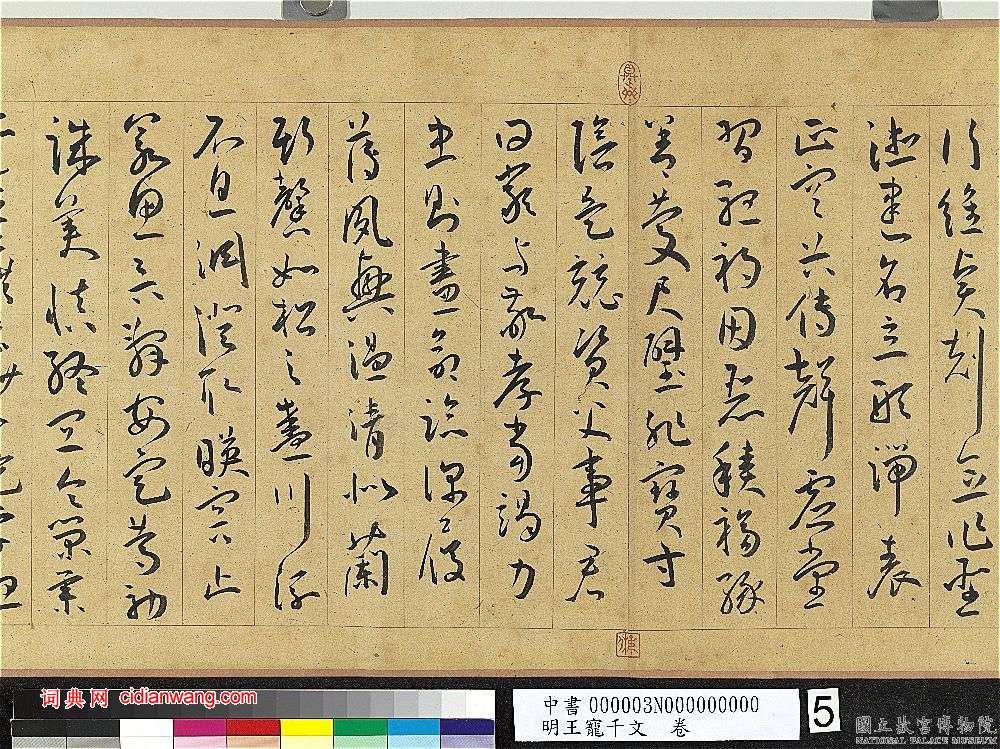 行維賢剋念作聖
德建名立形端表
正空谷傳聲虛堂
習聽禍因惡積福緣
善慶尺璧非寶寸
陰是競資父事君
曰嚴與敬孝當竭力
忠則盡命臨深履
薄夙興溫清似蘭
斯馨如松之盛川流
不息淵澄取暎容止
若思言辭安定篤初
誠美慎終宜令榮業
词典网 cidianwang.com
中書 000003N000000000
明王寵千文 卷
5
國立故宮博物院
NATIONAL PALACE MUSEUM